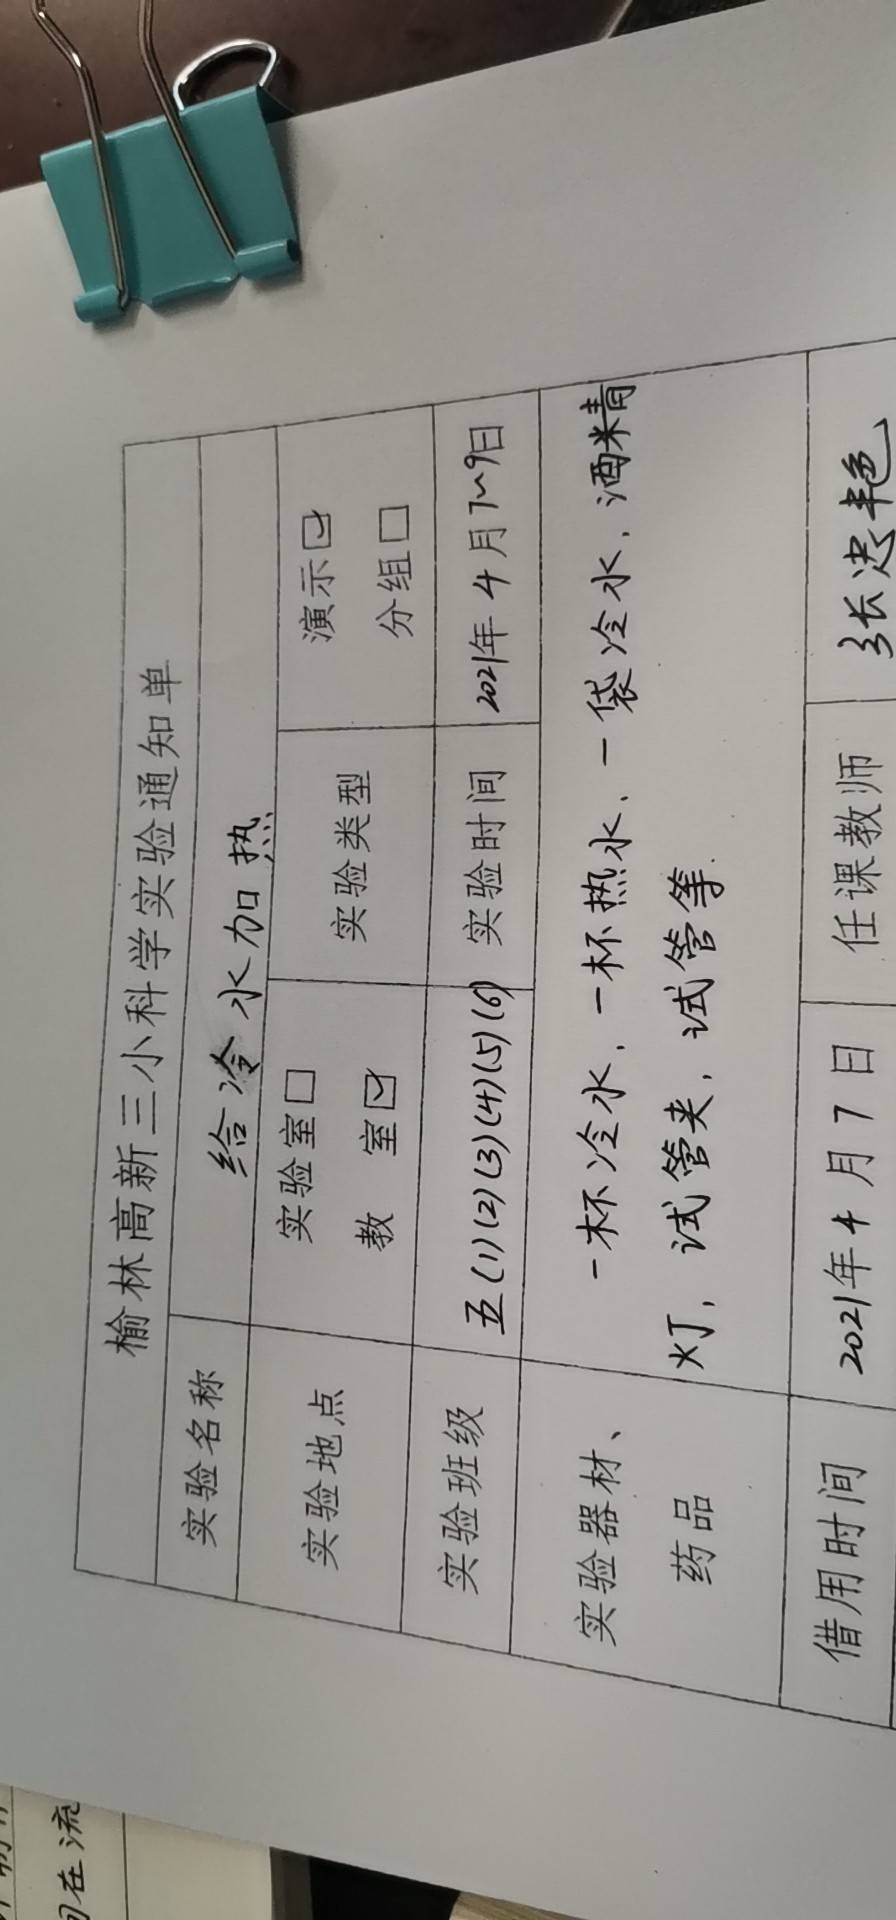 榆林高新三小科学实验通知单
实验名称 给冷水加热
实验地点 实验室□ 实验类型 演示☑
教 室☑ 分组□
实验班级 五(1)(2)(3)(4)(5)(6) 实验时间 2021年4月7~9日
实验器材、 一杯冷水、一杯热水、一袋冷水、酒精
药品 灯、试管夹、试管等.
借用时间 2021年4月7日 任课教师 张忠艳
在流